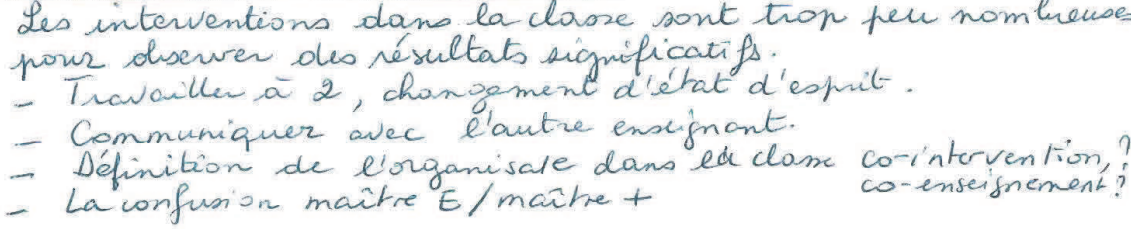 Les interventions dans la classe sont trop peu nombreuses
pour observer des résultats significatifs.
- Travailler à 2, changement d'état d'esprit.
- Communiquer avec l'autre enseignant.
- Définition de l'organisate dans la classe co-intervention,?
co-enseignement?
- La confusion maître E/maître +